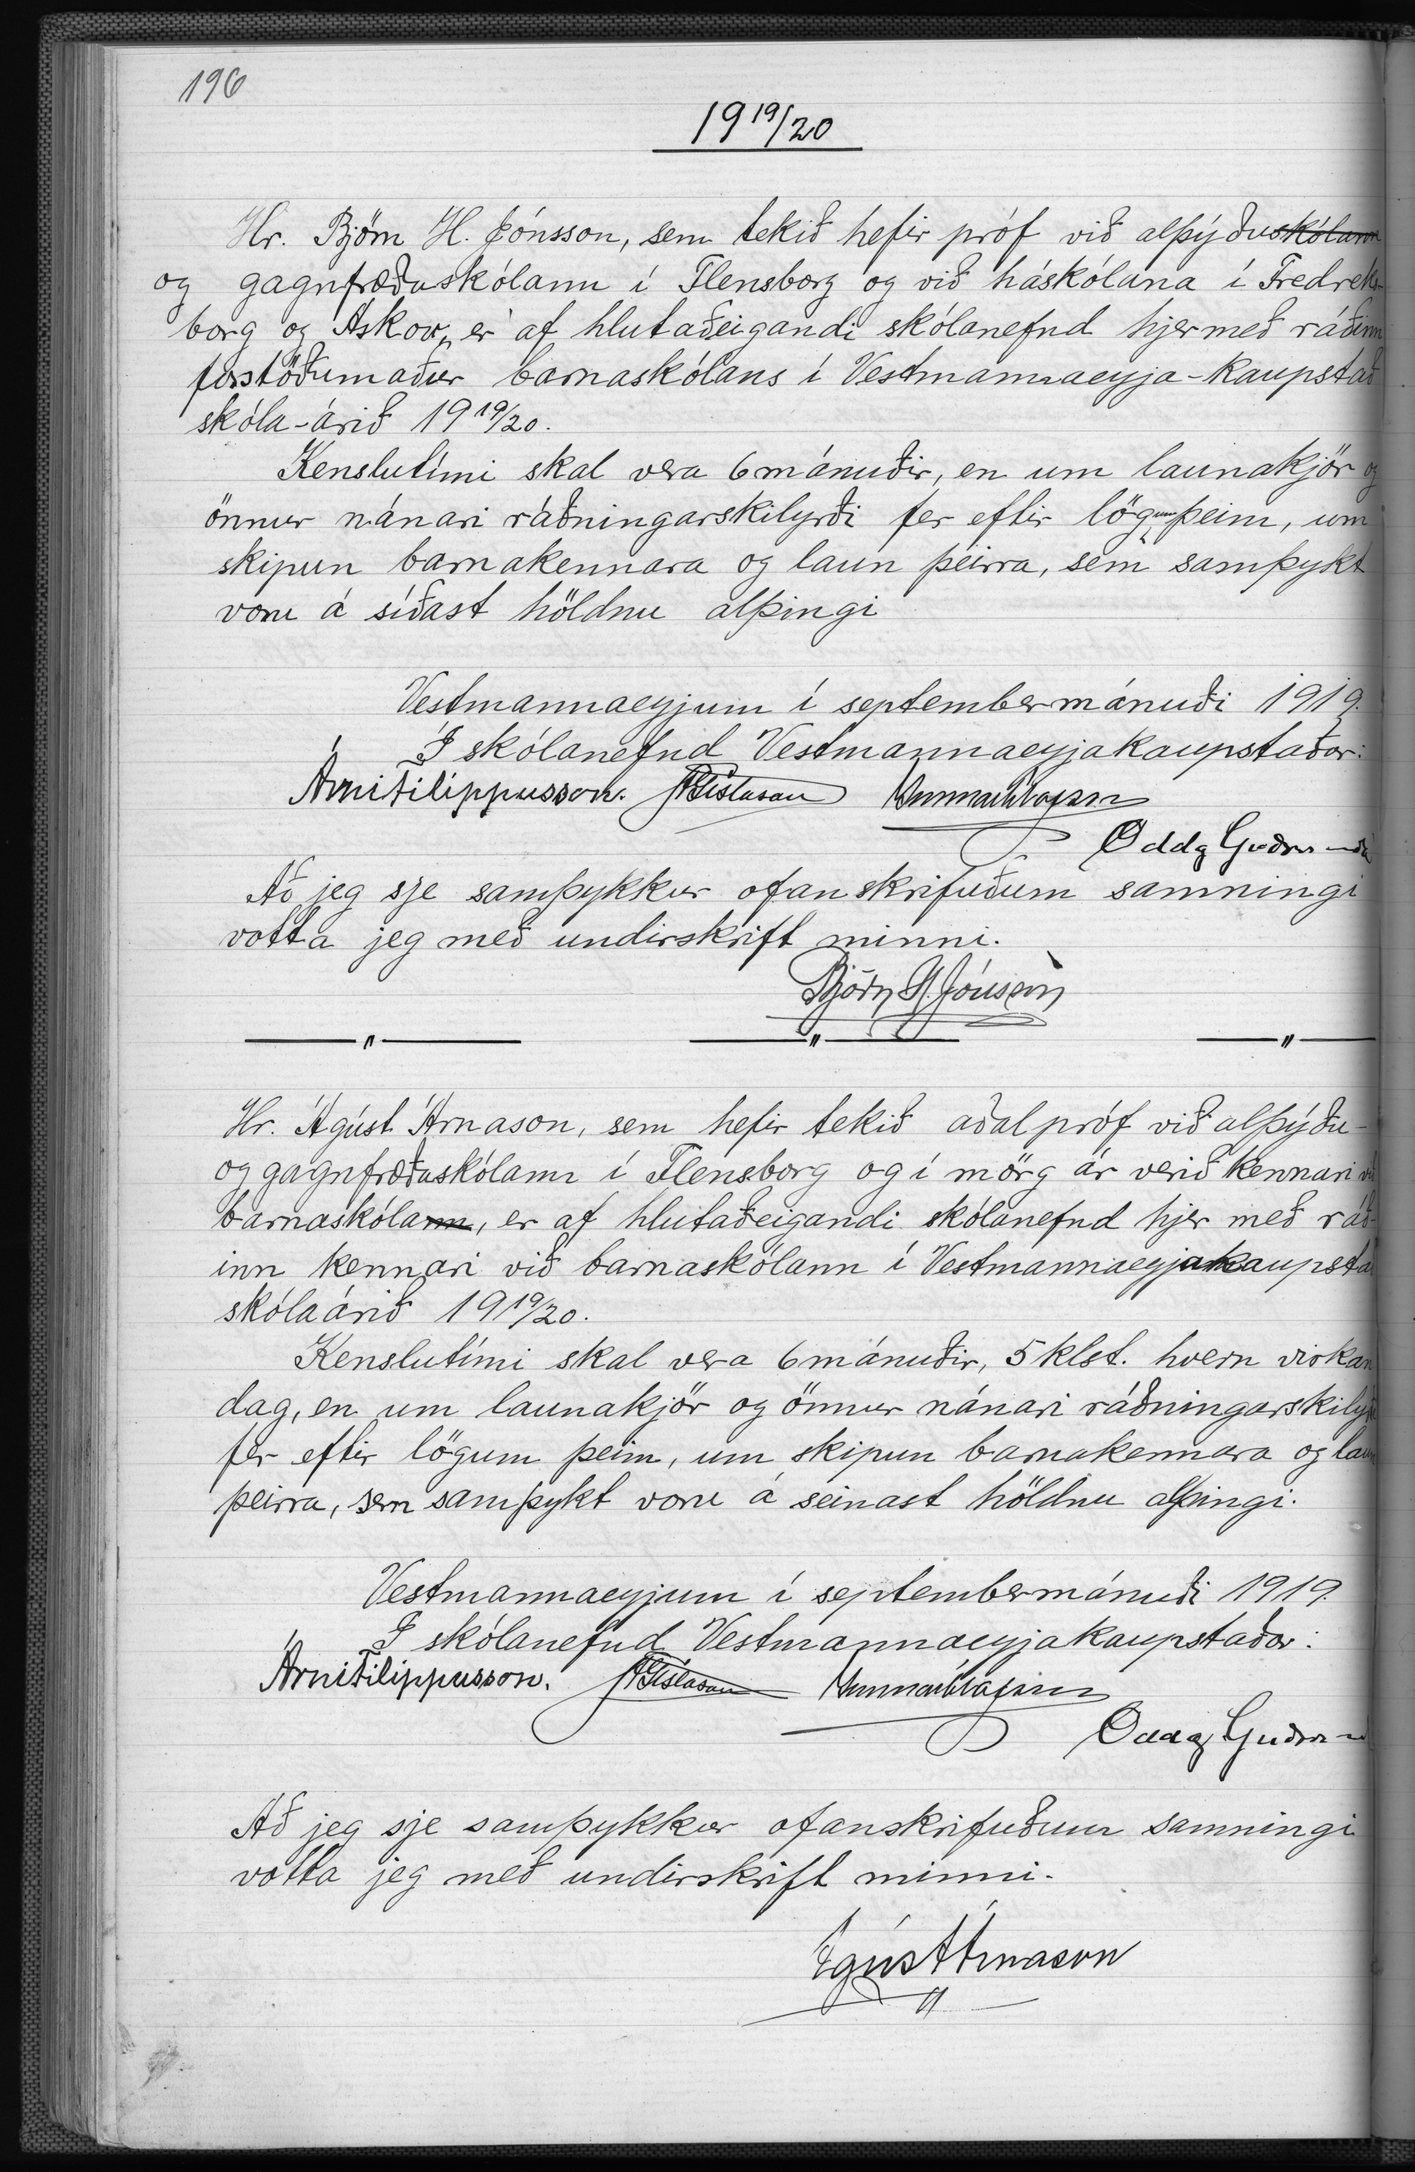 196
19 19/20
Hr. Björn H. Jónsson, sem tekið hefir próf við alþýðuskólann
og gagnfræðaskólann í Flensborg og við háskólana í Fredreks-
borg og Askov, er af hlutaðeigandi skólanefnd hjermeð ráðinn
forstöðumaður barnaskólans í Vestmannaeyja-kaupstað
skóla-árið 19 19/20.
Kenslutími skal vera 6 mánuðir, en um launakjör og
önnur nánari ráðningarskilyrði fer eftir lögum þeim, um
skipun barnakennara og laun þeirra, sem samþykt
voru á síðast höldnu alþingi
Vestmannaeyjum í septembermánuði 1919.
Í skólanefnd Vestmannaeyjakaupstaðar:
Árni Filippusson. JÞGíslason Gunnar Ólafsson
Oddg Guðmunds
Að jeg sje samþykkur ofanskrifuðum samningi
votta jeg með undirskrift minni.
Björn H. Jónsson
Hr. Ágúst Árnason, sem hefir tekið aðalpróf við alþýðu-
og gagnfræðaskólann í Flensborg og í mörg ár verið kennari við
barnaskólann, er af hlutaðeigandi skólanefnd hjer með ráð-
inn kennari við barnaskólann í Vestmannaeyjakaupstað
skólaárið 19 19/20.
Kenslutími skal vera 6 mánuðir, 5 klst. hvern virkan
dag, en um launakjör og önnur nánari ráðningarskilyrði
fer eftir lögum þeim, um skipun barnakennara og laun
þeirra, sem samþykt voru á seinast höldnu alþingi.
Vestmannaeyjum í septembermánuði 1919.
Í skólanefnd Vestmannaeyjakaupstaðar:
Árni Filippusson. JÞGíslason Gunnar Ólafsson
Oddg Guðm
Að jeg sje samþykkur ofanskrifuðum samningi
votta jeg með undirskrift minni.
Ágúst Árnason